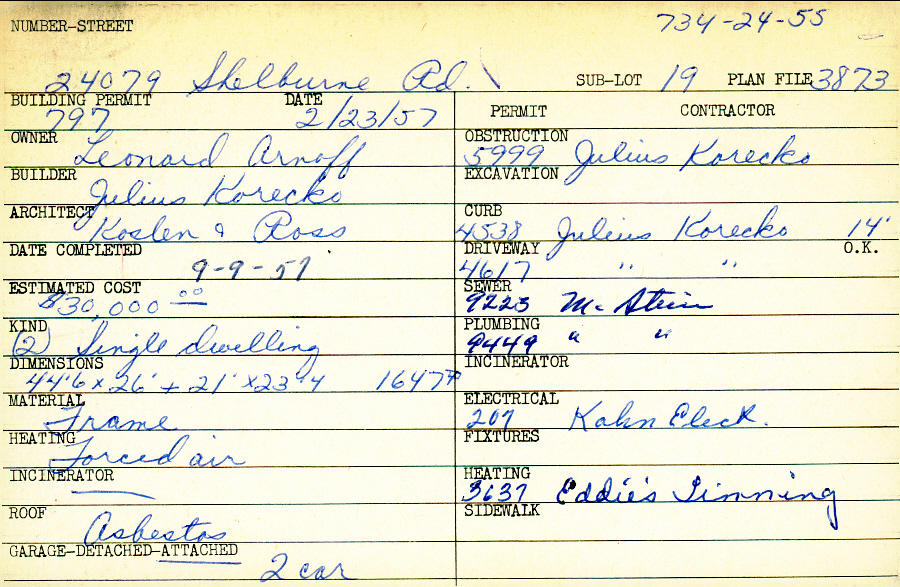 NUMBER-STREET 734-24-55
24079 Shelburne Rd. SUB-LOT 19 PLAN FILE 3873
BUILDING PERMIT DATE
797 2/23/57
OWNER
Leonard Arnoff
BUILDER
Julius Korecko
ARCHITECT
Koslen & Ross
DATE COMPLETED
9-9-57
ESTIMATED COST
$30,000 00
KIND
(2) Single dwelling
DIMENSIONS
44'6 x 26' + 21' x 23'4 1647
MATERIAL
Frame
HEATING
Forced air
INCINERATOR
ROOF
Asbestos
GARAGE-DETACHED-ATTACHED
2 car
PERMIT CONTRACTOR
OBSTRUCTION
5999 Julius Korecko
EXCAVATION
CURB
4538 Julius Korecko 14'
DRIVEWAY O.K.
4617 " "
SEWER
9223 Mc Stein
PLUMBING
9449 " "
INCINERATOR
ELECTRICAL
207 Kahn Elect.
FIXTURES
HEATING
3637 Eddie's Tinning
SIDEWALK